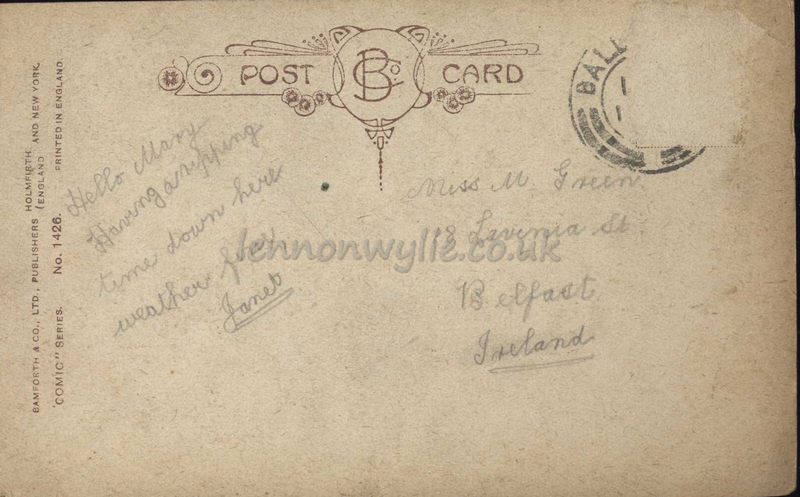 POST CARD
BCo.
BALL
BAMFORTH & CO., LTD., PUBLISHERS HOLMFIRTH (ENGLAND) AND NEW YORK.
"COMIC" SERIES. No. 1426. PRINTED IN ENGLAND.
Hello Mary
Having a ripping
time down here
weather
Janet
Miss M. Green
8 Lavinia St.
Belfast
Ireland
lennonwylie.co.uk